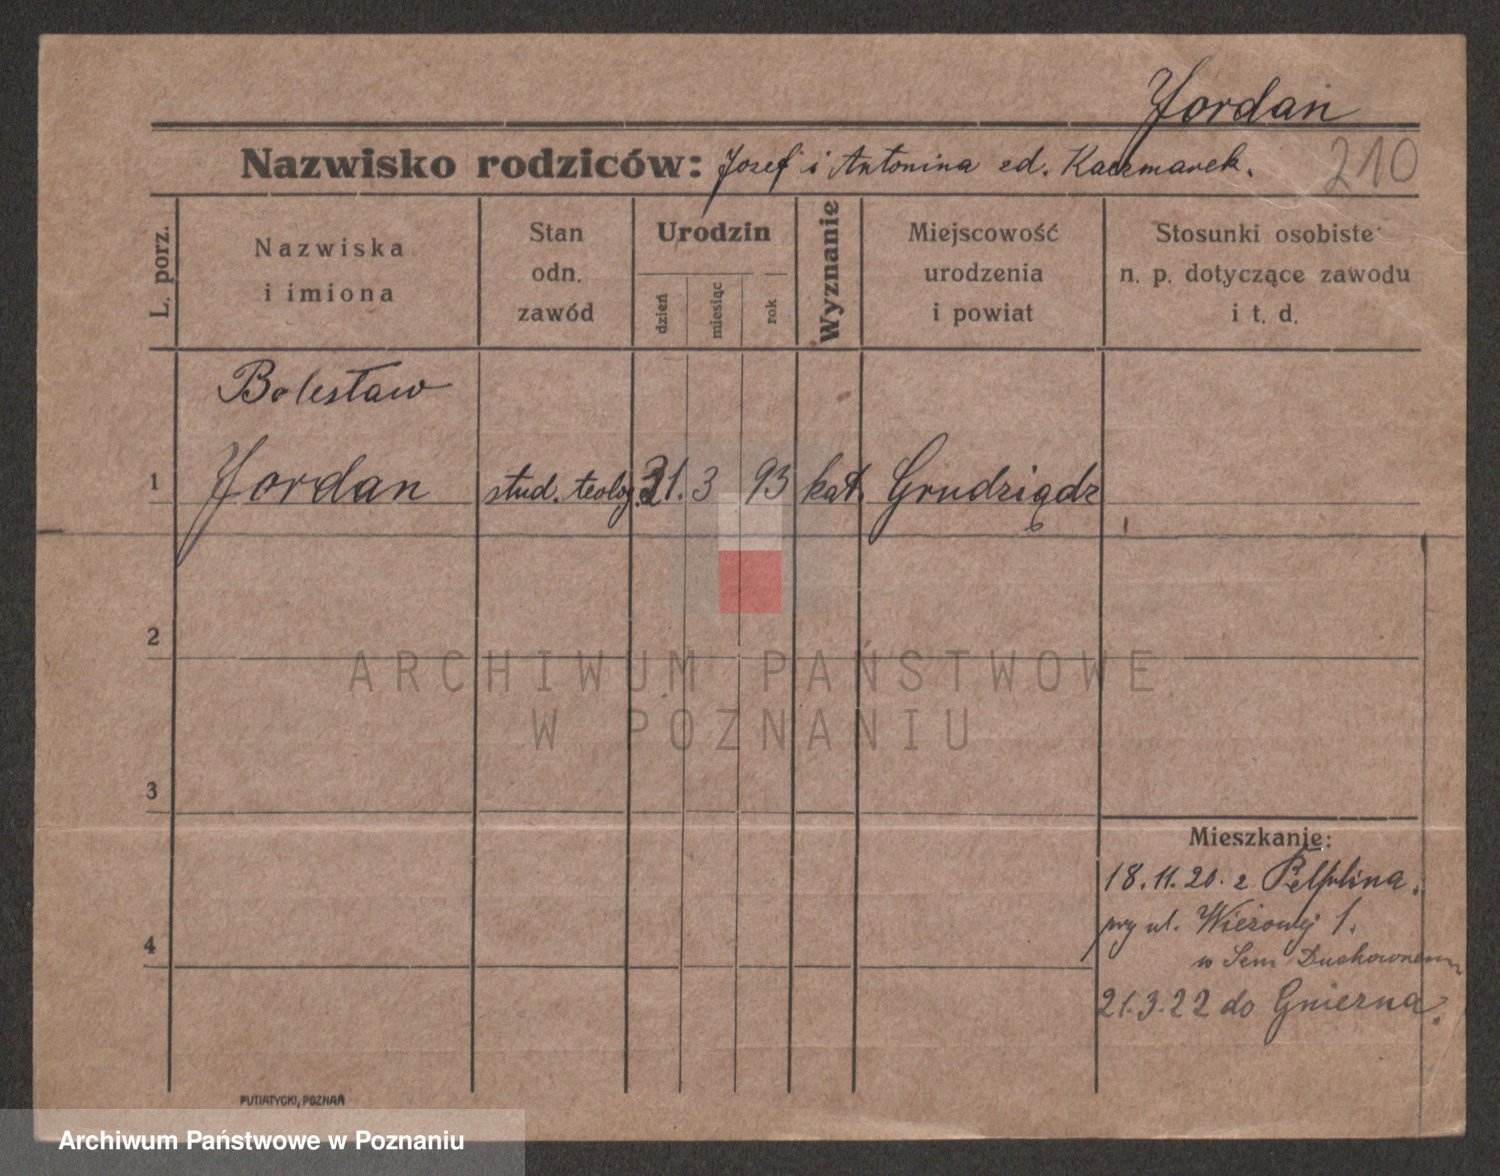 Jordan
Nazwisko rodziców: Josef i Antonina ed. Kaczmarek.
210
L. porz.
Nazwiska
i imiona
Stan
odn.
zawód
Urodzin
dzień
miesiąc
rok
Wyznanie
Miejscowość
urodzenia
i powiat
Stosunki osobiste
n. p. dotyczące zawodu
i t. d.
Bolesław
1 Jordan stud. teolog. 31. 3 93 kat. Grudziądz
2
ARCHIWUM PAŃSTWOWE
W POZNANIU
3
Mieszkanie:
18.11.20. z Pelplina.
przy ul. Wieżowej 1.
4
w Sem Duchownem
21.3.22 do Gniezna.
PUTIATYCKI, POZNAŃ
Archiwum Państwowe w Poznaniu